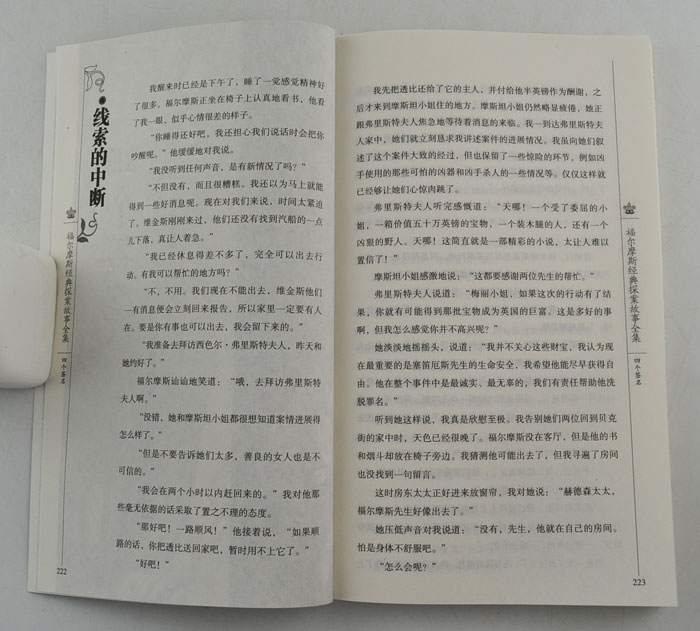 线索的中断
我醒来时已经是下午了，睡了一觉感觉精神好
了很多。福尔摩斯正坐在椅子上认真地看书，他看
了我一眼，似乎心情很差的样子。
“你睡得还好吧，我还担心我们说话时会把你
吵醒呢。”他缓缓地对我说。
“我没听到任何声音，是有新情况了吗？”
“不但没有，而且很糟糕。我还以为马上就能
得到一些好消息呢。现在对我们来说，时间太紧迫
了。维金斯刚刚来过，他们还没有找到汽船的一点
儿下落，真让人着急。”
“我已经休息得差不多了，完全可以出去行
动。有我可以帮忙的地方吗？”
“不，不用。我们现在不能出去，维金斯他们
一有消息便会立刻回来报告，所以家里一定要有人
在。要是你有事也可以出去，我会留下来的。”
“我准备去拜访西色尔·弗里斯特夫人，昨天和
她约好了。”
福尔摩斯讪讪地笑道：“哦，去拜访弗里斯特
夫人啊。”
“没错，她和摩斯坦小姐都很想知道案情进展得
怎么样了。”
“但是不要告诉她们太多，善良的女人也是不
可信的。”
“我会在两个小时以内赶回来的。”我对他那
些毫无依据的话采取了置之不理的态度。
“那好吧！一路顺风！”他接着说，“如果顺
路的话，你把透比送回家吧，暂时用不上它了。”
“好吧！”
222
我先把透比还给了它的主人，并付给他半英镑作为酬谢，之
后才来到摩斯坦小姐住的地方。摩斯坦小姐仍然略显疲倦，她正
跟弗里斯特夫人焦急地等待着消息的来临。我一到达弗里斯特夫
人家中，她们就立刻恳求我讲述案件的进展情况。我虽向她们叙
述了这个案件大致的经过，但也保留了一些惊险的环节，例如凶
手使用的那些可怕的凶器和凶手杀人的一些情况等。仅仅这样就
已经够让她们心惊肉跳了。
弗里斯特夫人听完感慨道：“天哪！一个受了委屈的小
姐，一箱价值五十万英镑的宝物，一个装木腿的人，还有一个
凶狠的野人。天哪！这简直就是一部精彩的小说，太让人难以
置信了！”
摩斯坦小姐感激地说：“这都要感谢两位先生的帮忙。”
弗里斯特夫人说道：“梅丽小姐，如果这次的行动有了结
果，你就有可能得到那批宝物成为英国的巨富。这是多好的事
啊，但我怎么感觉你并不高兴呢？”
她淡淡地摇摇头，说道：“我并不关心这些财宝，我认为现
在最重要的是塞笛厄斯先生的生命安全，我希望他能尽早获得自
由。他在整个事件中是最诚实、最无辜的，我们有责任帮助他洗
脱罪名。”
听到她这样说，我真是欣慰至极。我告别她们两位回到贝克
街的家中时，天色已经很晚了。福尔摩斯没在客厅，但是他的书
和烟斗却放在椅子旁边。我猜测他可能出去了，但我寻遍了房间
也没找到一句留言。
这时房东太太正好进来放窗帘，我对她说：“赫德森太太，
福尔摩斯先生好像出去了。”
她压低声音对我说道：“没有，先生，他就在自己的房间。
怕是身体不舒服吧。”
“怎么会呢？”
223
福尔摩斯经典探案故事全集
四个签名
福尔摩斯经典探案故事全集
四个签名